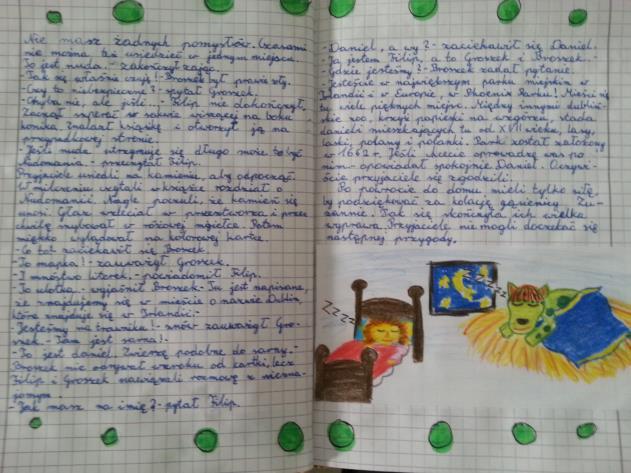 Nie masz żadnych pomysłów. Czasami
nie można też usiedzieć w jednym miejscu.
To jest nuda! - zakończył zając.
- Tak się właśnie czuję! - Broszek był prawie zły.
- Czy to niebezpieczne? - spytał Groszek.
- Chyba nie, ale jeśli... - Filip nie dokończył.
Zaczął szperać w sakwie wiszącej na boku
konika. Znalazł książkę i otworzył ją na
prawidłowej stronie.
- Jeśli nuda utrzymuje się długo może to być
Nudomania - przeczytał Filip.
Przyjaciele usiedli na kamieniu, aby odpocząć.
W milczeniu czytali w książce rozdział o
Nudomanii. Nagle poczuli, że kamień się
unosi. Głaz wzleciał w przestworza i przez
chwilę szybował w różowej mgiełce. Potem
miękko wylądował na kolorowej kartce.
- Co to? zaciekawił się Broszek.
- To mapka! - zauważył Groszek.
- I mnóstwo literek, - powiadomił Filip.
- To ulotka. - wyjaśnił Broszek - Tu jest napisane,
że znajdujemy się w mieście o nazwie Dublin,
które znajduje się w Irlandii.
- Jesteśmy na trawniku! - znów zauważył Gro-
szek. - Tam jest sarna! -
- To jest daniel. Zwierzę podobne do sarny. -
Broszek nie odrywał wzroku od kartki, lecz
Filip i Groszek nawiązali rozmowę z niezna-
jomym.
- Jak masz na imię? - pytał Filip.
- Daniel, a wy? - zaciekawił się Daniel.
- Ja jestem Filip, a to Groszek i Broszek. -
- Gdzie jesteśmy? - Broszek zadał pytanie.
- Jesteście w największym parku miejskim w
Irlandii i w Europie, w Phoenix Parku! Mieści się
tu wiele pięknych miejsc. Między innymi dubliń-
skie zoo, krzyż papieski na wzgórzu, stada
danieli mieszkających tu od XVII wieku, lasy,
laski, polany i polanki. Park został założony
w 1662 r. Jeśli chcecie oprowadzę was po
nim - opowiadał spokojnie Daniel. Oczywi-
ście przyjaciele się zgodzili.
Po powrocie do domu mieli tylko siłę,
by podziękować za kolację gąsienicy Zu-
zannie. Tak się skończyła ich wielka
wyprawa. Przyjaciele nie mogli doczekać się
następnej przygody.
Zzzz
zzzzz